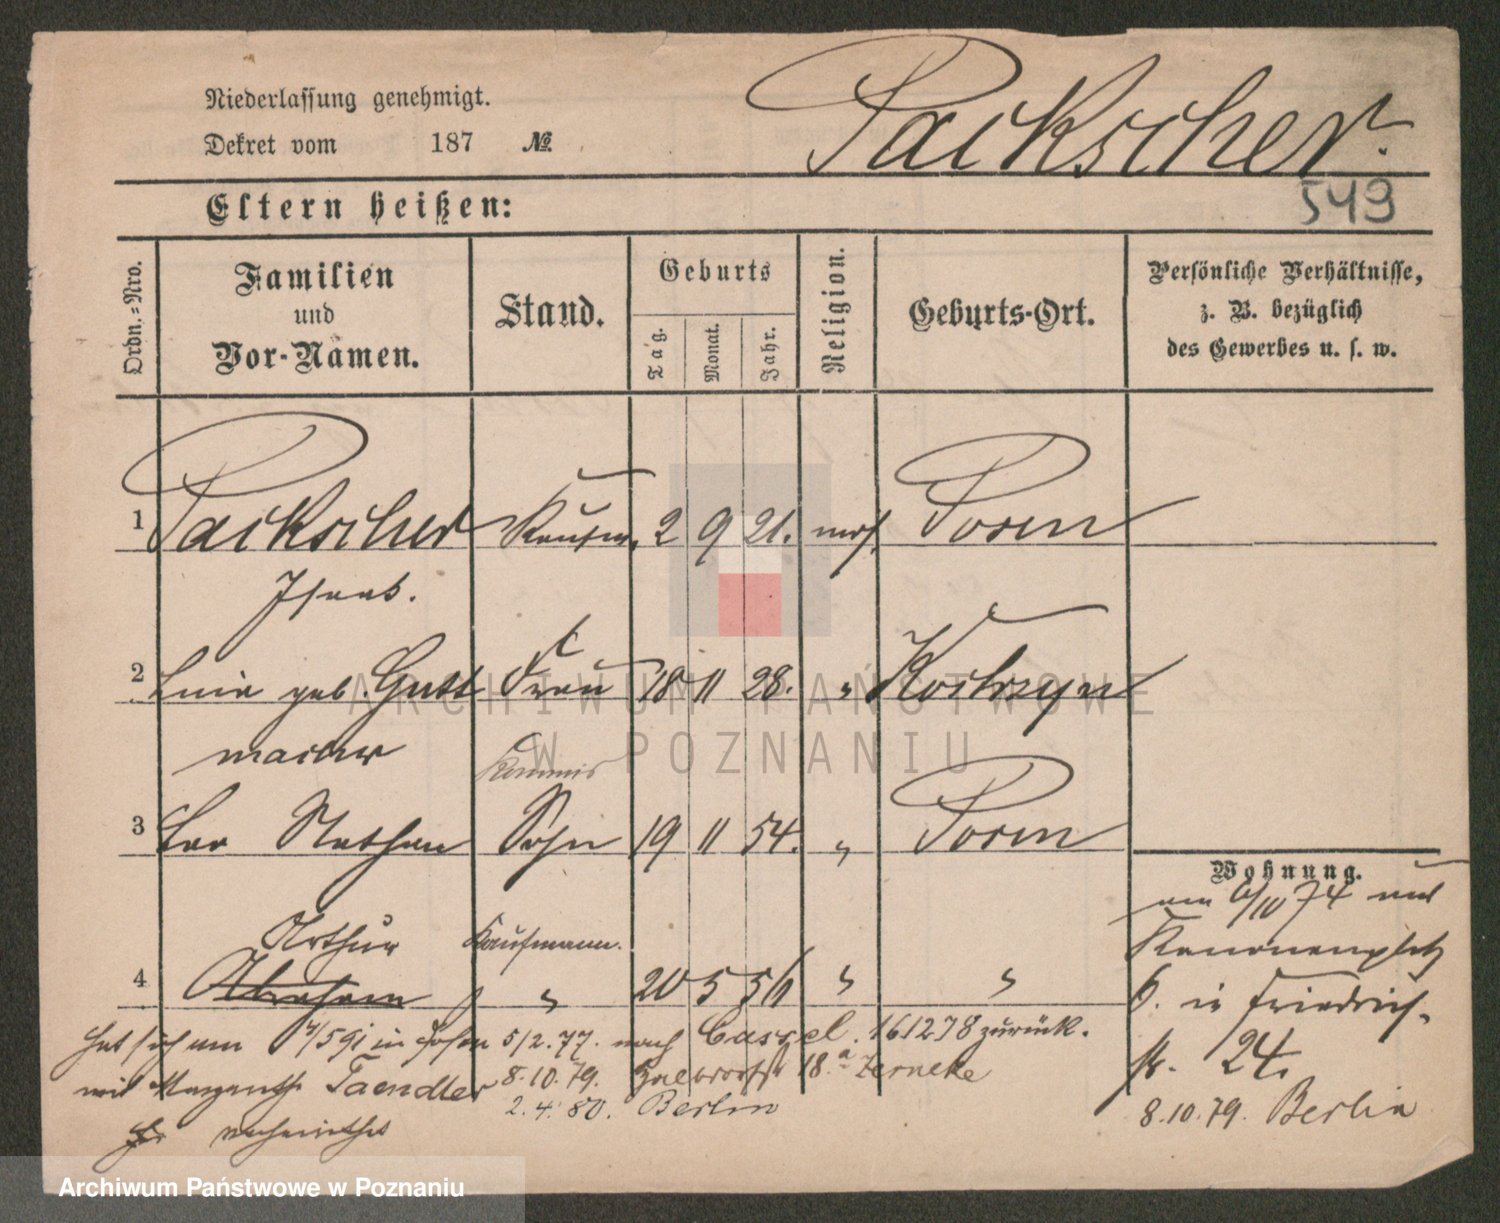 Niederlassung genehmigt.
Dekret vom 187 №
Packscher.
549
Eltern heißen:
Ordn.-Nro.
Familien
und
Vor-Namen.
Stand.
Geburts
Tag.
Monat.
Jahr.
Religion.
Geburts-Ort.
Persönliche Verhältnisse,
z. B. bezüglich
des Gewerbes u. s. w.
1 Packscher Kaufm. 2 9 21. mos. Posen
Isaak.
2 geb. Gutt Frau 18 11 28. " Kostrzyn
macher
Kommis
3 Leo Nathan Sohn 19 11 54. " Posen
Wohnung.
Arthur Kaufmann.
4 Abraham " 20 5 56 " "
am 6/10 74 nach
Kanonenplatz
6. in Friedrich-
str. 24.
8.10.79. Berlin
Hat sich am 4/5 91 in Posen
mit Margarethe Taendler
verheirathet
5/2.77. nach Cassel. 161278 zurück.
8.10.79. 18.a Zerneke
2.4.80. Berlin
ARCHIWUM PAŃSTWOWE
W POZNANIU
Archiwum Państwowe w Poznaniu